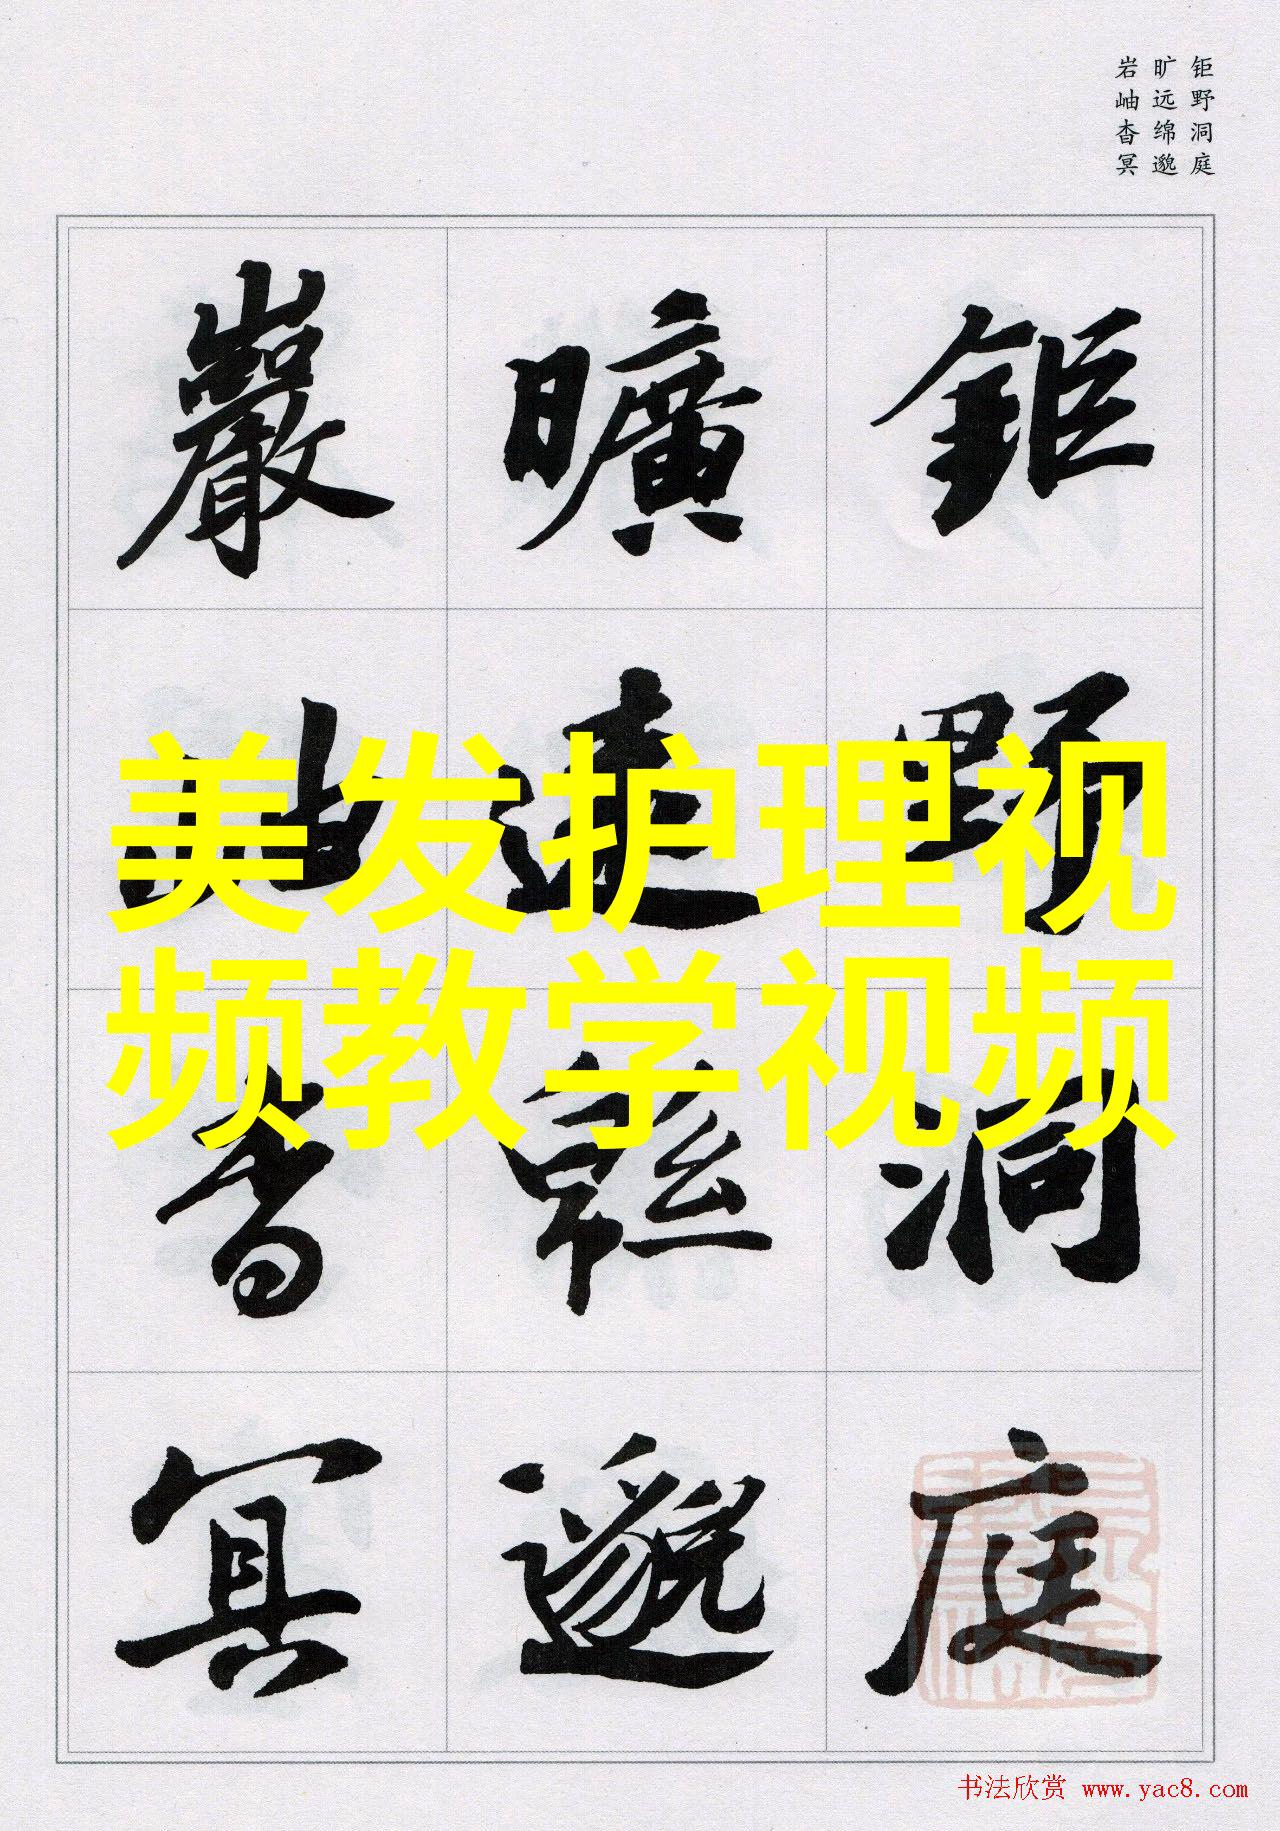 钜野洞庭
旷远绵邈
岩岫杳冥
鉅野洞庭
曠遠緜邈
巖岫杳冥
美发护理视
频教学视频
书法欣赏 www.yac8.com